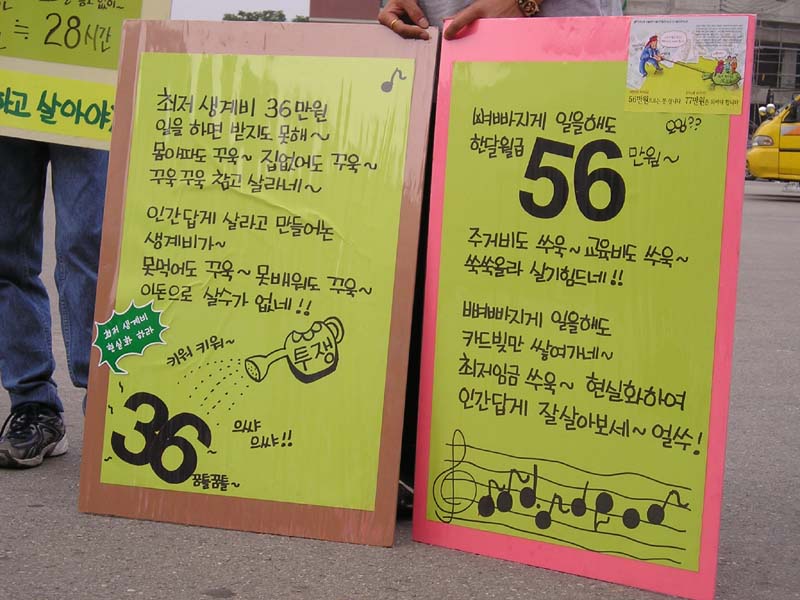 ≒ 28시간
하고 살아야
최저 생계비 36만원
일을 하면 받지도 못해~
몸아파도 꾸욱~ 집없어도 꾸욱~
꾸욱꾸욱 참고 살라네~
인간답게 살라고 만들어논
생계비가~
못먹어도 꾸욱~ 못배워도 꾸욱~
이돈으로 살수가 없네!!
최저 생계비
현실화 하라
키워 키워~
투쟁
36
으쌰
으쌰!!
꿈틀꿈틀~
뼈빠지게 일을해도
한달월급 56 만원~
주거비도 쑤욱~ 교육비도 쑤욱~
쑥쑥올라 살기힘드네!!
뼈빠지게 일을해도
카드빚만 쌓여가네~
최저임금 쑤욱~ 현실화하여
인간답게 잘살아보세~ 얼쑤!
56만원으로는 못 삽니다
77만원은 되어야 합니다